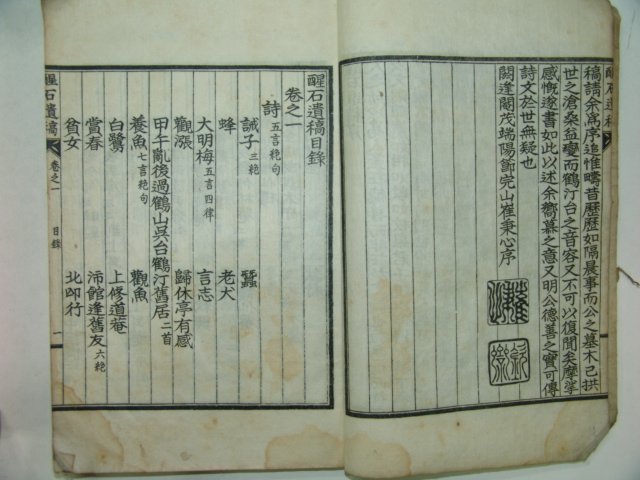 稿請余爲序追惟疇昔歷歷如隔晨事而公之墓木已拱
世之滄桑益變而鶴汀台之音容又不可以復聞矣摩挲
感慨遂書如此以述余嚮慕之意又明公德善之實可傳
詩文於世無疑也
閼逢閹茂端陽節完山崔秉心序
醒石遺稿
醒石遺稿目錄
卷之一
詩 五言絶句
誡子 三絶
蠶
蜂
老犬
大明梅 五言四律
言志
觀漲
歸休亭有感
甲午亂後過鶴山吳台鶴汀舊居 二首
養魚 七言絶句
觀魚
白鷺
上修道菴
賞春
沛館逢舊友 六絶
貧女
北邙行
醒石遺稿
卷之一
目錄
一